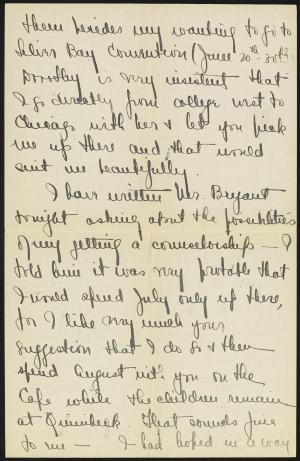 Then besides my wanting to go to
Silver Bay Convention (June 20th-30th
Dorothy is very insistent that
I go directly from college west to
Chicago with her & let you pick
me up there and that would
suit me beautifully.
I have written Mr. Bryant
tonight asking about the possibilities
of my getting a counselorship – I
told him it was very probable that
I would spend July only up there,
for I like very much your
suggestion that I do so & then
spend August with you on the
Cape while the children remain
at Quinibeck. That sounds fine
to me – I had hoped in a way